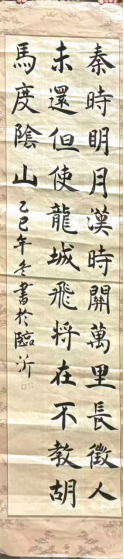 秦時明月漢時關萬里長徵人
未還但使龍城飛将在不教胡
馬度陰山乙巳年冬書於臨沂